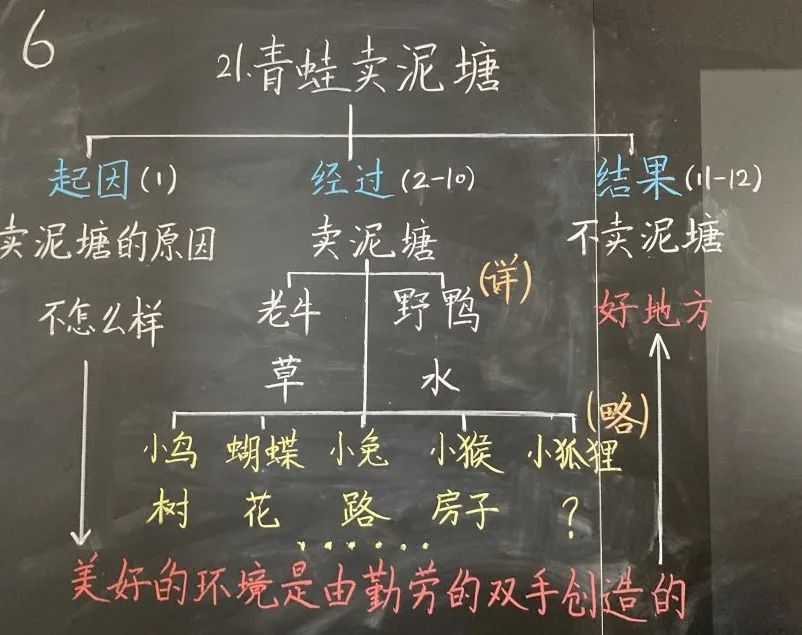 6
21.青蛙卖泥塘
起因(1) 经过(2-10) 结果(11-12)
卖泥塘的原因 卖泥塘 不卖泥塘
(详)
不怎么样 老牛 野鸭 好地方
草 水
(略)
小鸟 蝴蝶 小兔 小猴 小狐狸
树 花 路 房子 ?
······
美好的环境是由勤劳的双手创造的